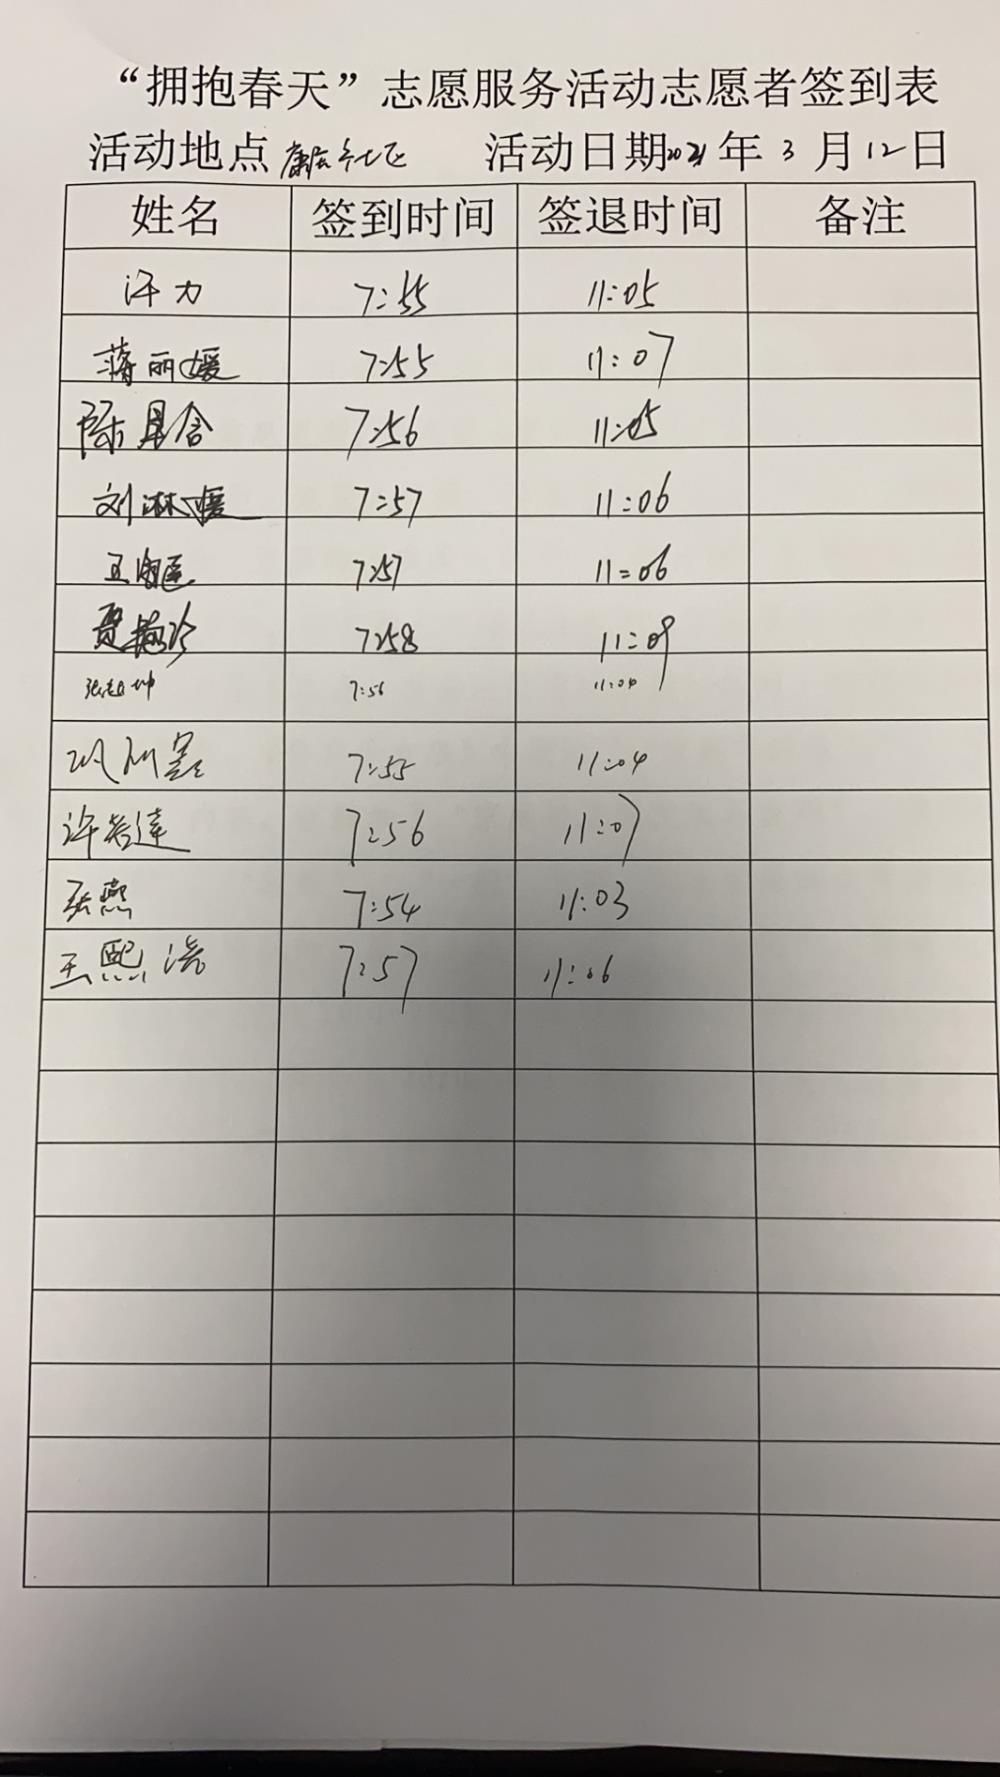 “拥抱春天”志愿服务活动志愿者签到表
活动地点 活动日期2021年3月12日
姓名 签到时间 签退时间 备注
汗力 7:55 11:05
蒋丽媛 7:55 11:07
陈昱含 7:56 11:05
刘淋媛 7:57 11:06
王 7:57 11:06
贾 7:58 11:09
张 坤 7:56 11:04
7:55 11:04
许若達 7:56 11:07
张燕 7:54 11:03
王熙浩 7:57 11:06